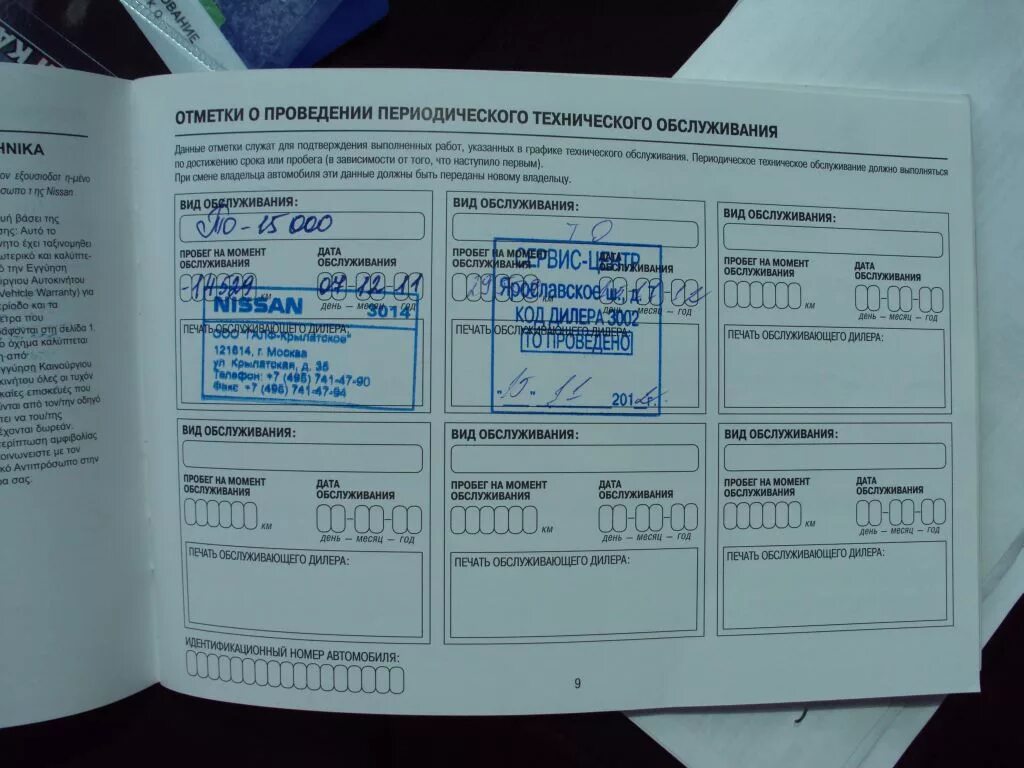 ОВАНИЕ
КА
ΗΝΙΚΑ
ον εξουσιοδοτ η-μένο
σωπο τ ης Nissan
υή βάσει της
σης: Αυτό το
νητο έχει ταξινομηθεί
ωτερικό και καλύπτε-
ό την Εγγύηση
ούργιου Αυτοκινήτου
Vehicle Warranty) για
ερίοδο και τα
μετρα που
ράφονται στη σελίδα 1.
ό όχημα καλύπτεται
η από
γγύηση Καινούργιου
κινήτου όλες οι τυχόν
καίες επισκευές που
ούνται από τον/την οδηγό
πει να του/της
έχονται δωρεάν.
ερίπτωση αμφιβολίας
οινωνείστε με τον
κό Αντιπρόσωπο στην
ρα σας.
ОТМЕТКИ О ПРОВЕДЕНИИ ПЕРИОДИЧЕСКОГО ТЕХНИЧЕСКОГО ОБСЛУЖИВАНИЯ
Данные отметки служат для подтверждения выполненных работ, указанных в графике технического обслуживания. Периодическое техническое обслуживание должно выполняться
по достижению срока или пробега (в зависимости от того, что наступило первым).
При смене владельца автомобиля эти данные должны быть переданы новому владельцу.
ВИД ОБСЛУЖИВАНИЯ:
ТО-15 000
ПРОБЕГ НА МОМЕНТ
ОБСЛУЖИВАНИЯ
ДАТА
ОБСЛУЖИВАНИЯ
14529 км
07 12 11
день – месяц – год
ПЕЧАТЬ ОБСЛУЖИВАЮЩЕГО ДИЛЕРА:
NISSAN 3014
ООО "ГАЛФ-Крылатское"
121614, г. Москва
ул Крылатская, д. 35
Телефон: +7 (495) 741-47-90
Факс +7 (495) 741-47-94
ВИД ОБСЛУЖИВАНИЯ:
ТО
ПРОБЕГ НА МОМЕНТ
ОБСЛУЖИВАНИЯ
км
ПЕЧАТЬ ОБСЛУЖИВАЮЩЕГО ДИЛЕРА:
СЕРВИС-ЦЕНТР
Ярославское ш.,
КОД ДИЛЕРА 3002
ТО ПРОВЕДЕНО
"15" 11 201 г.
ВИД ОБСЛУЖИВАНИЯ:
ПРОБЕГ НА МОМЕНТ
ОБСЛУЖИВАНИЯ
ДАТА
ОБСЛУЖИВАНИЯ
км
день – месяц – год
ПЕЧАТЬ ОБСЛУЖИВАЮЩЕГО ДИЛЕРА:
ВИД ОБСЛУЖИВАНИЯ:
ПРОБЕГ НА МОМЕНТ
ОБСЛУЖИВАНИЯ
ДАТА
ОБСЛУЖИВАНИЯ
км
день – месяц – год
ПЕЧАТЬ ОБСЛУЖИВАЮЩЕГО ДИЛЕРА:
ВИД ОБСЛУЖИВАНИЯ:
ПРОБЕГ НА МОМЕНТ
ОБСЛУЖИВАНИЯ
ДАТА
ОБСЛУЖИВАНИЯ
км
день – месяц – год
ПЕЧАТЬ ОБСЛУЖИВАЮЩЕГО ДИЛЕРА:
ВИД ОБСЛУЖИВАНИЯ:
ПРОБЕГ НА МОМЕНТ
ОБСЛУЖИВАНИЯ
ДАТА
ОБСЛУЖИВАНИЯ
км
день – месяц – год
ПЕЧАТЬ ОБСЛУЖИВАЮЩЕГО ДИЛЕРА:
ИДЕНТИФИКАЦИОННЫЙ НОМЕР АВТОМОБИЛЯ:
9